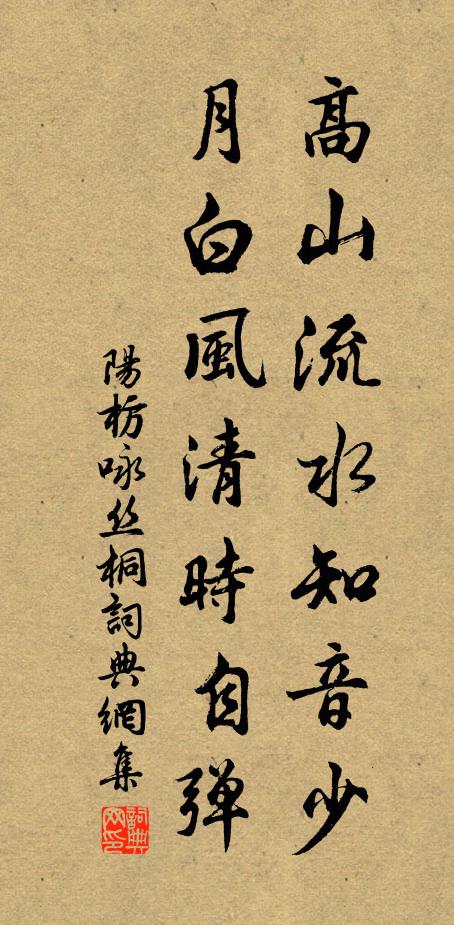 高山流水知音少
月白風清時自彈
陽枋咏丝桐詞典網集
詞典
网印